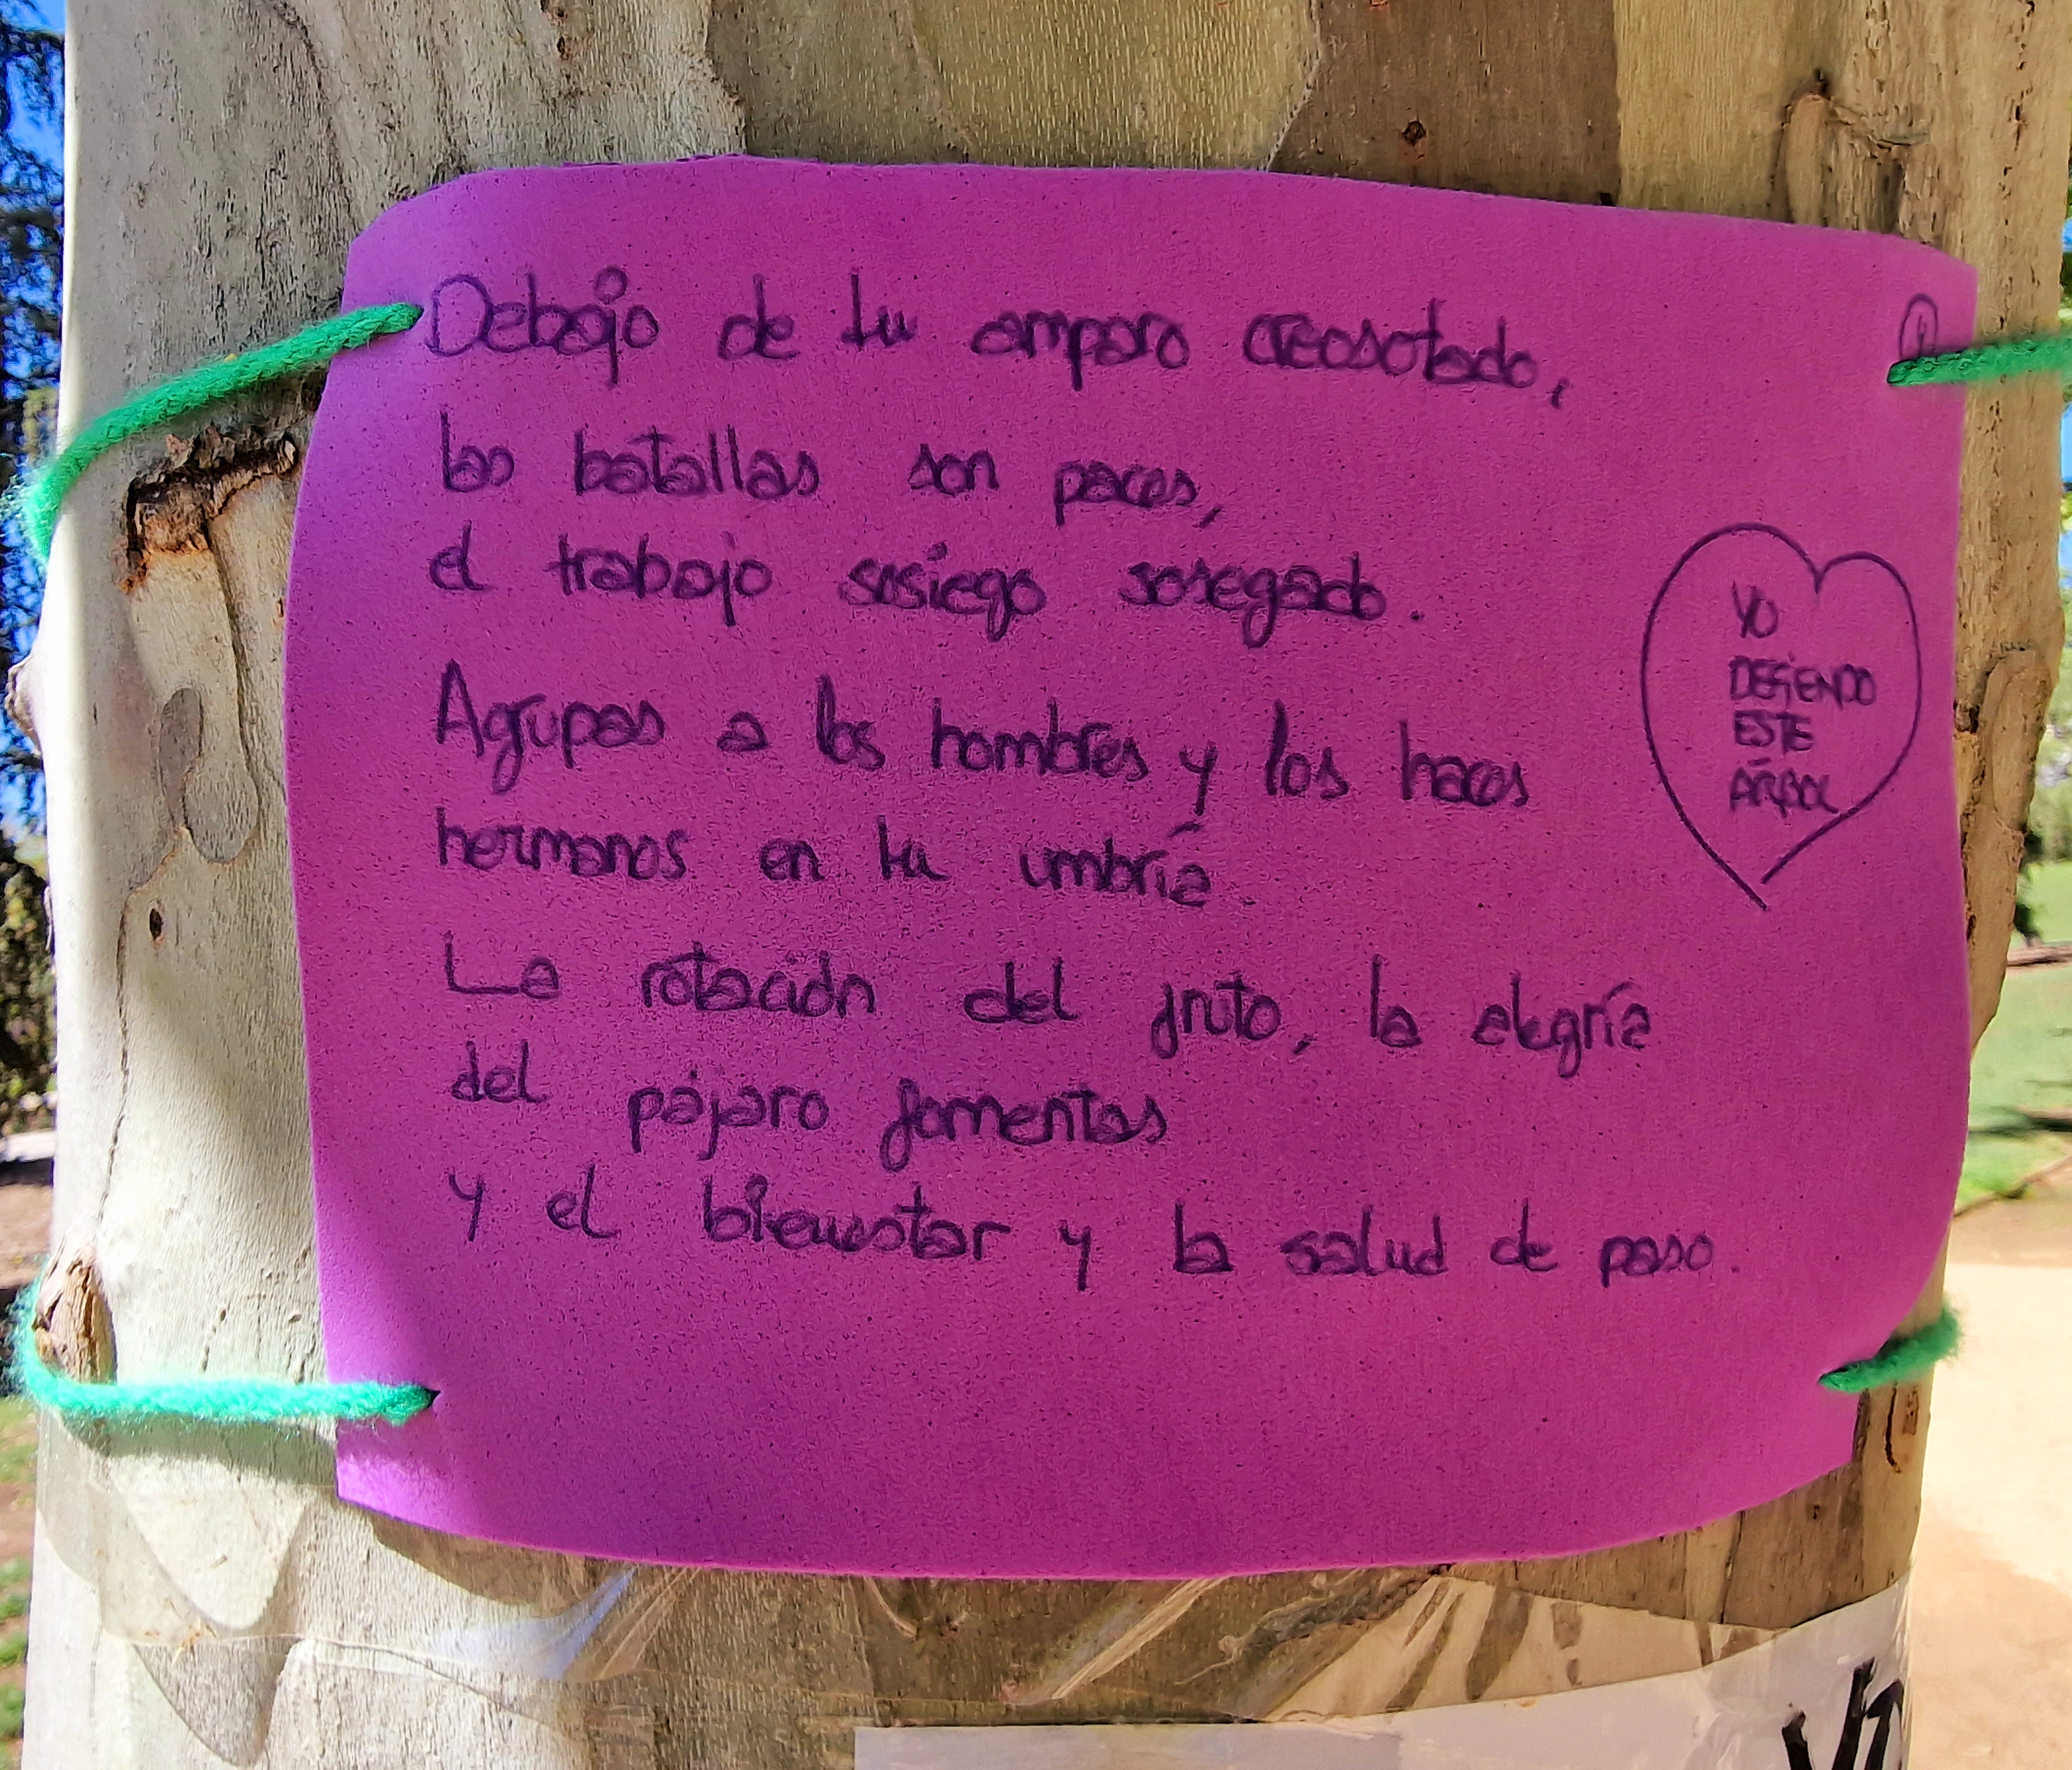 Debajo de tu amparo creosotado,
las batallas son paces,
el trabajo sosiego sosegado.
Agrupas a los hombres y los haces
hermanos en tu umbría.
La rotación del fruto, la alegría
del pájaro fomentas
y el bienestar y la salud de paso.
YO
DEFIENDO
ESTE
ÁRBOL